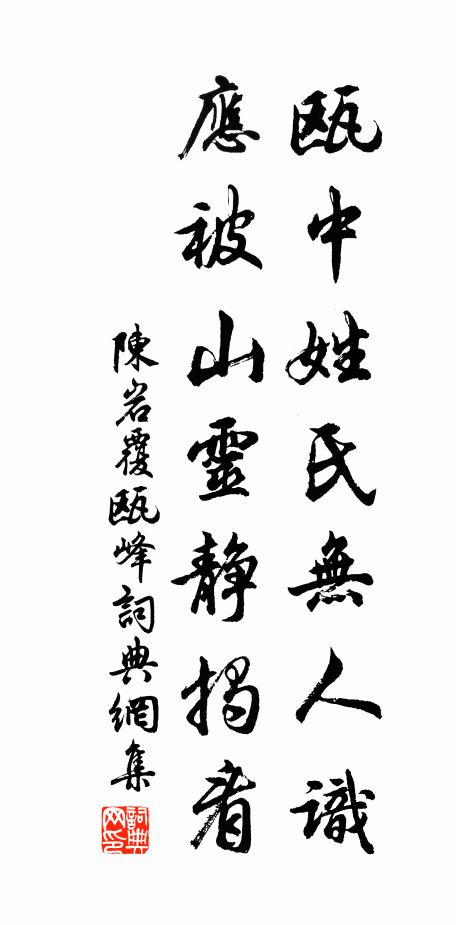 甌中姓氏無人識
應被山靈静揭看
陳岩覆甌峰詞典網集
詞典网印